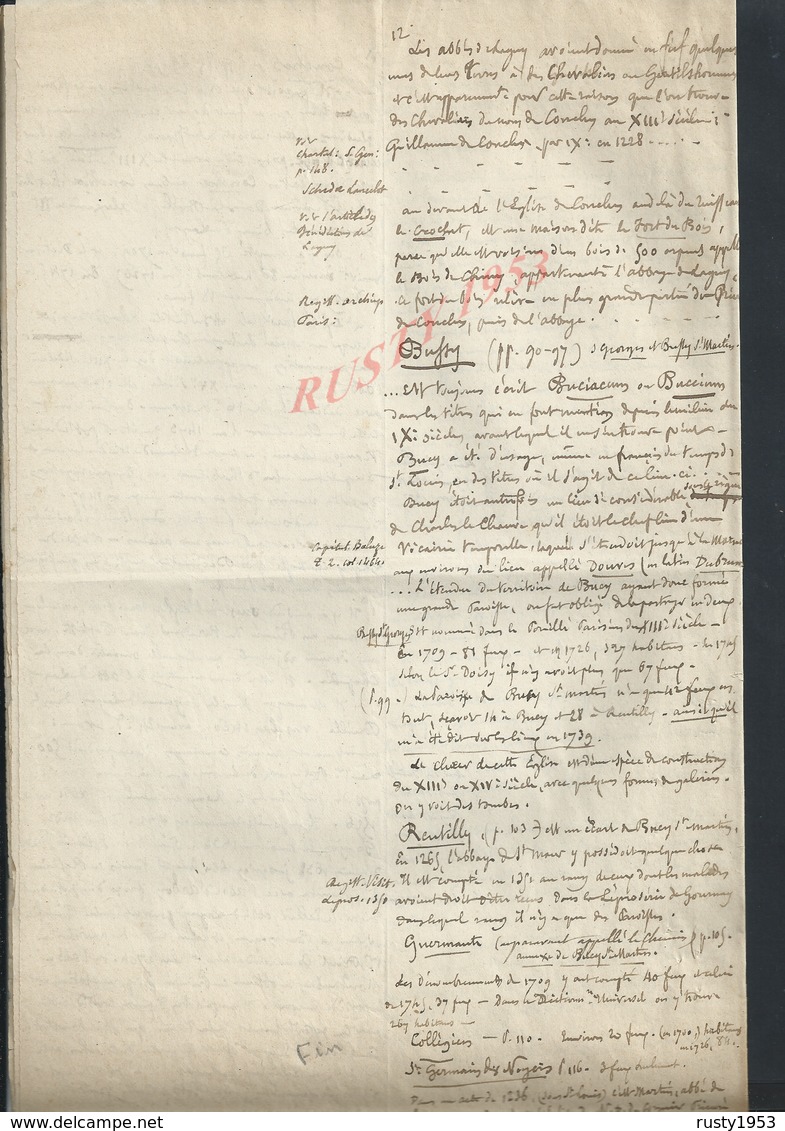 12
Les abbés de Lagny avoient donné en fief quelques
unes de leurs terres à des Chevaliers ou Gentilshommes
et c'est apparemmt pour cette raison que l'on trouve
des Chevaliers du nom de Conches au XIIIe siècle :
Guillaume de Conches par Ex: en 1228 .....
Chartul: S. Gen:
p. 148.
Sched. Lancelot
au devant de l'Eglise de Conches au delà du ruisseau
le Crochet, est une maison dite le Fort du Bois,
parce qu'elle est voisine d'un bois de 500 arpens appellé
le Bois de Chiny, appartenant à l'abbaye de Lagny.
Ce fort du bois relève en plus grande partie du Prieuré
de Conches, puis de l'abbaye.
Bénédictins de
Lagny
Reg. M. archiep
Paris:
Bussy (pp. 90-97) St Georges et Bussy St Martin.
... Est toujours écrit Buciacum ou Bucciacum
dans les titres qui en font mention depuis le milieu du
IXe siècle, avant lequel il ne s'en trouve point -
Bucy a été d'usage, même en français du temps de
St Louis, en des titres où il s'agit de ce lieu-ci ...
Bucy étoit autrefois un lieu si considérable
de Charles le Chauve qu'il étoit le chef lieu d'une
Vicairie temporelle, laquelle s'étendoit jusqu'à la Marne
aux environs du lieu appellé Douves (en latin Dubrum
Capitul. Baluze
T. 2. col. 1464.
... L'étendue du territoire de Bucy ayant donc formé
une grande Paroisse, on fut obligé de la partager en deux.
Bussy St Georges est nommé dans le Pouillé Parisien du XIIIe siècle -
En 1709 - 81 feux - et en 1726, 327 habitans - En 1745
selon le Sr Doisy il n'y avoit plus que 67 feux -
(P. 99.) La Paroisse de Bussy St Martin n'a que 42 feux en
tout, sçavoir 14 à Bucy et 28 à Rentilly - ainsi qu'il
m'a été dit sur les lieux en 1739.
Le choeur de cette Eglise est d'une espèce de construction
du XIIIe ou XIVe siècle, avec quelques formes de galeries.
On y voit des tombes.
Rentilly (p. 103) est un écart de Bucy St Martin.
En 1265 l'abbaye de St Maur y possédoit quelque chose
Il est compté en 1351 au rang de ceux dont les malades
avoient droit d'être reçus dans la Léproserie de Gournay
dans lequel rang il n'y a que des Paroisses.
Reg. M. Visit.
Lepros. 1350
Guermante (auparavant appellé le Chemin) p. 105.
annexe de Bucy St Martin.
Les dénombrements de 1709 y ont compté 40 feux et celui
de 1745, 37 feux - Dans le Dictionn. Universel on y trouve
267 habitans -
Collégien - P. 110. Environ 20 feux. (en 1700,) habitans
en 1726, 84.
St Germain des Noyers P. 116. 3 feux seulement.
Dans un acte de 1236 (sous St Louis) c'est Martin, abbé de
Fin
RUSTY 1953
rusty1953